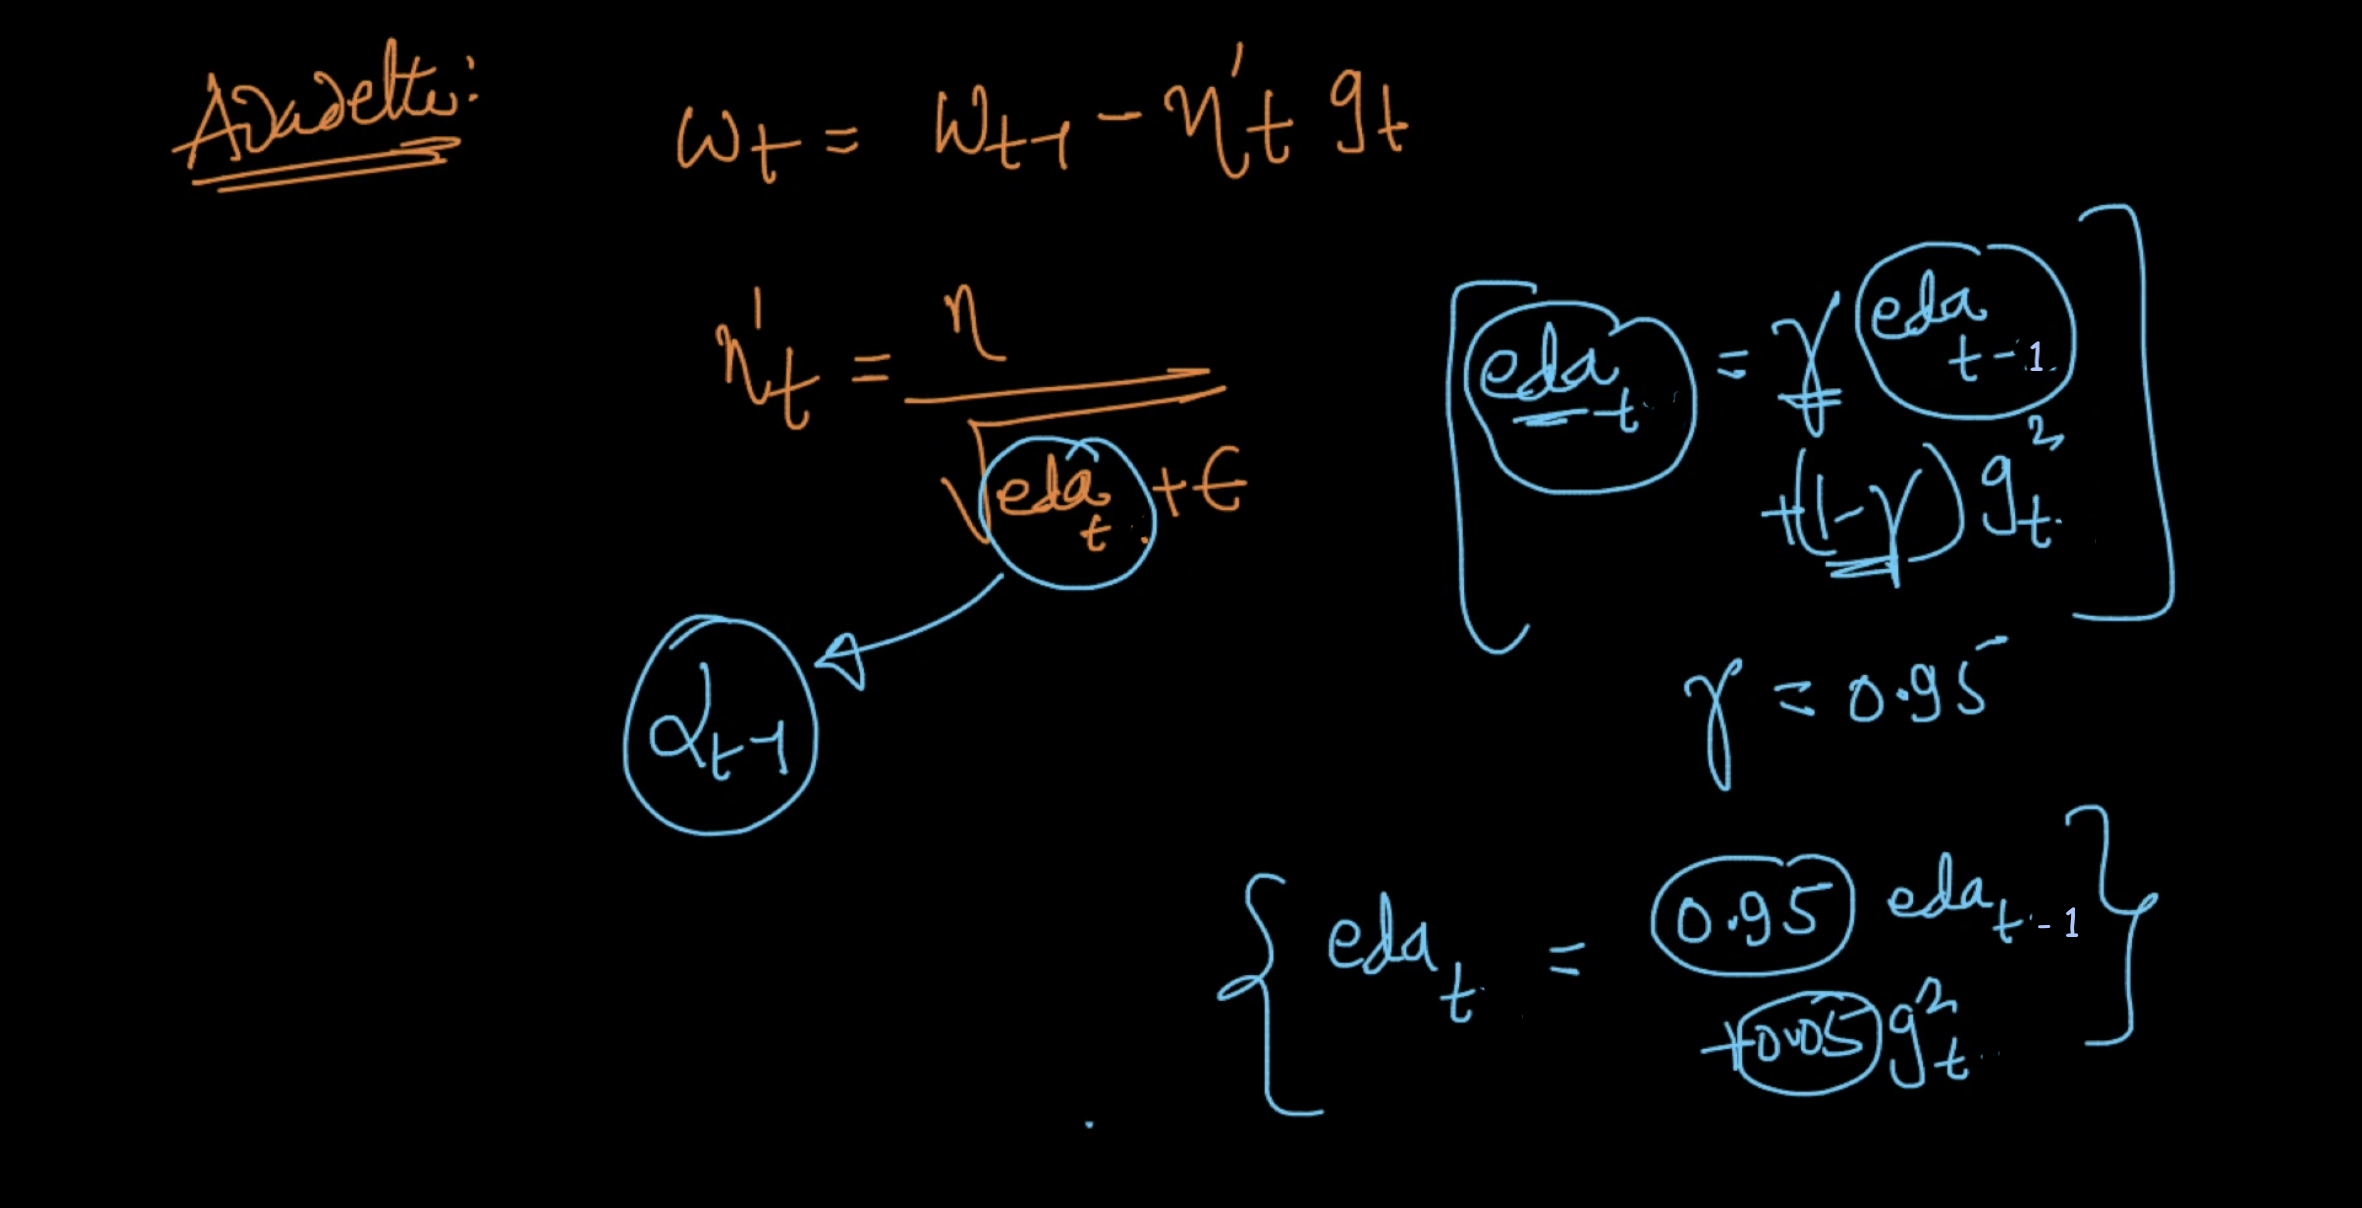 Adadelta:
ωt = Wt-1 - η't gt
η't = η / √(edât + ϵ)
[edat = γ edat-1
+(1-γ) gt²]
αt-1
γ = 0.95
{edat = 0.95 edat-1
+0.05 gt²}